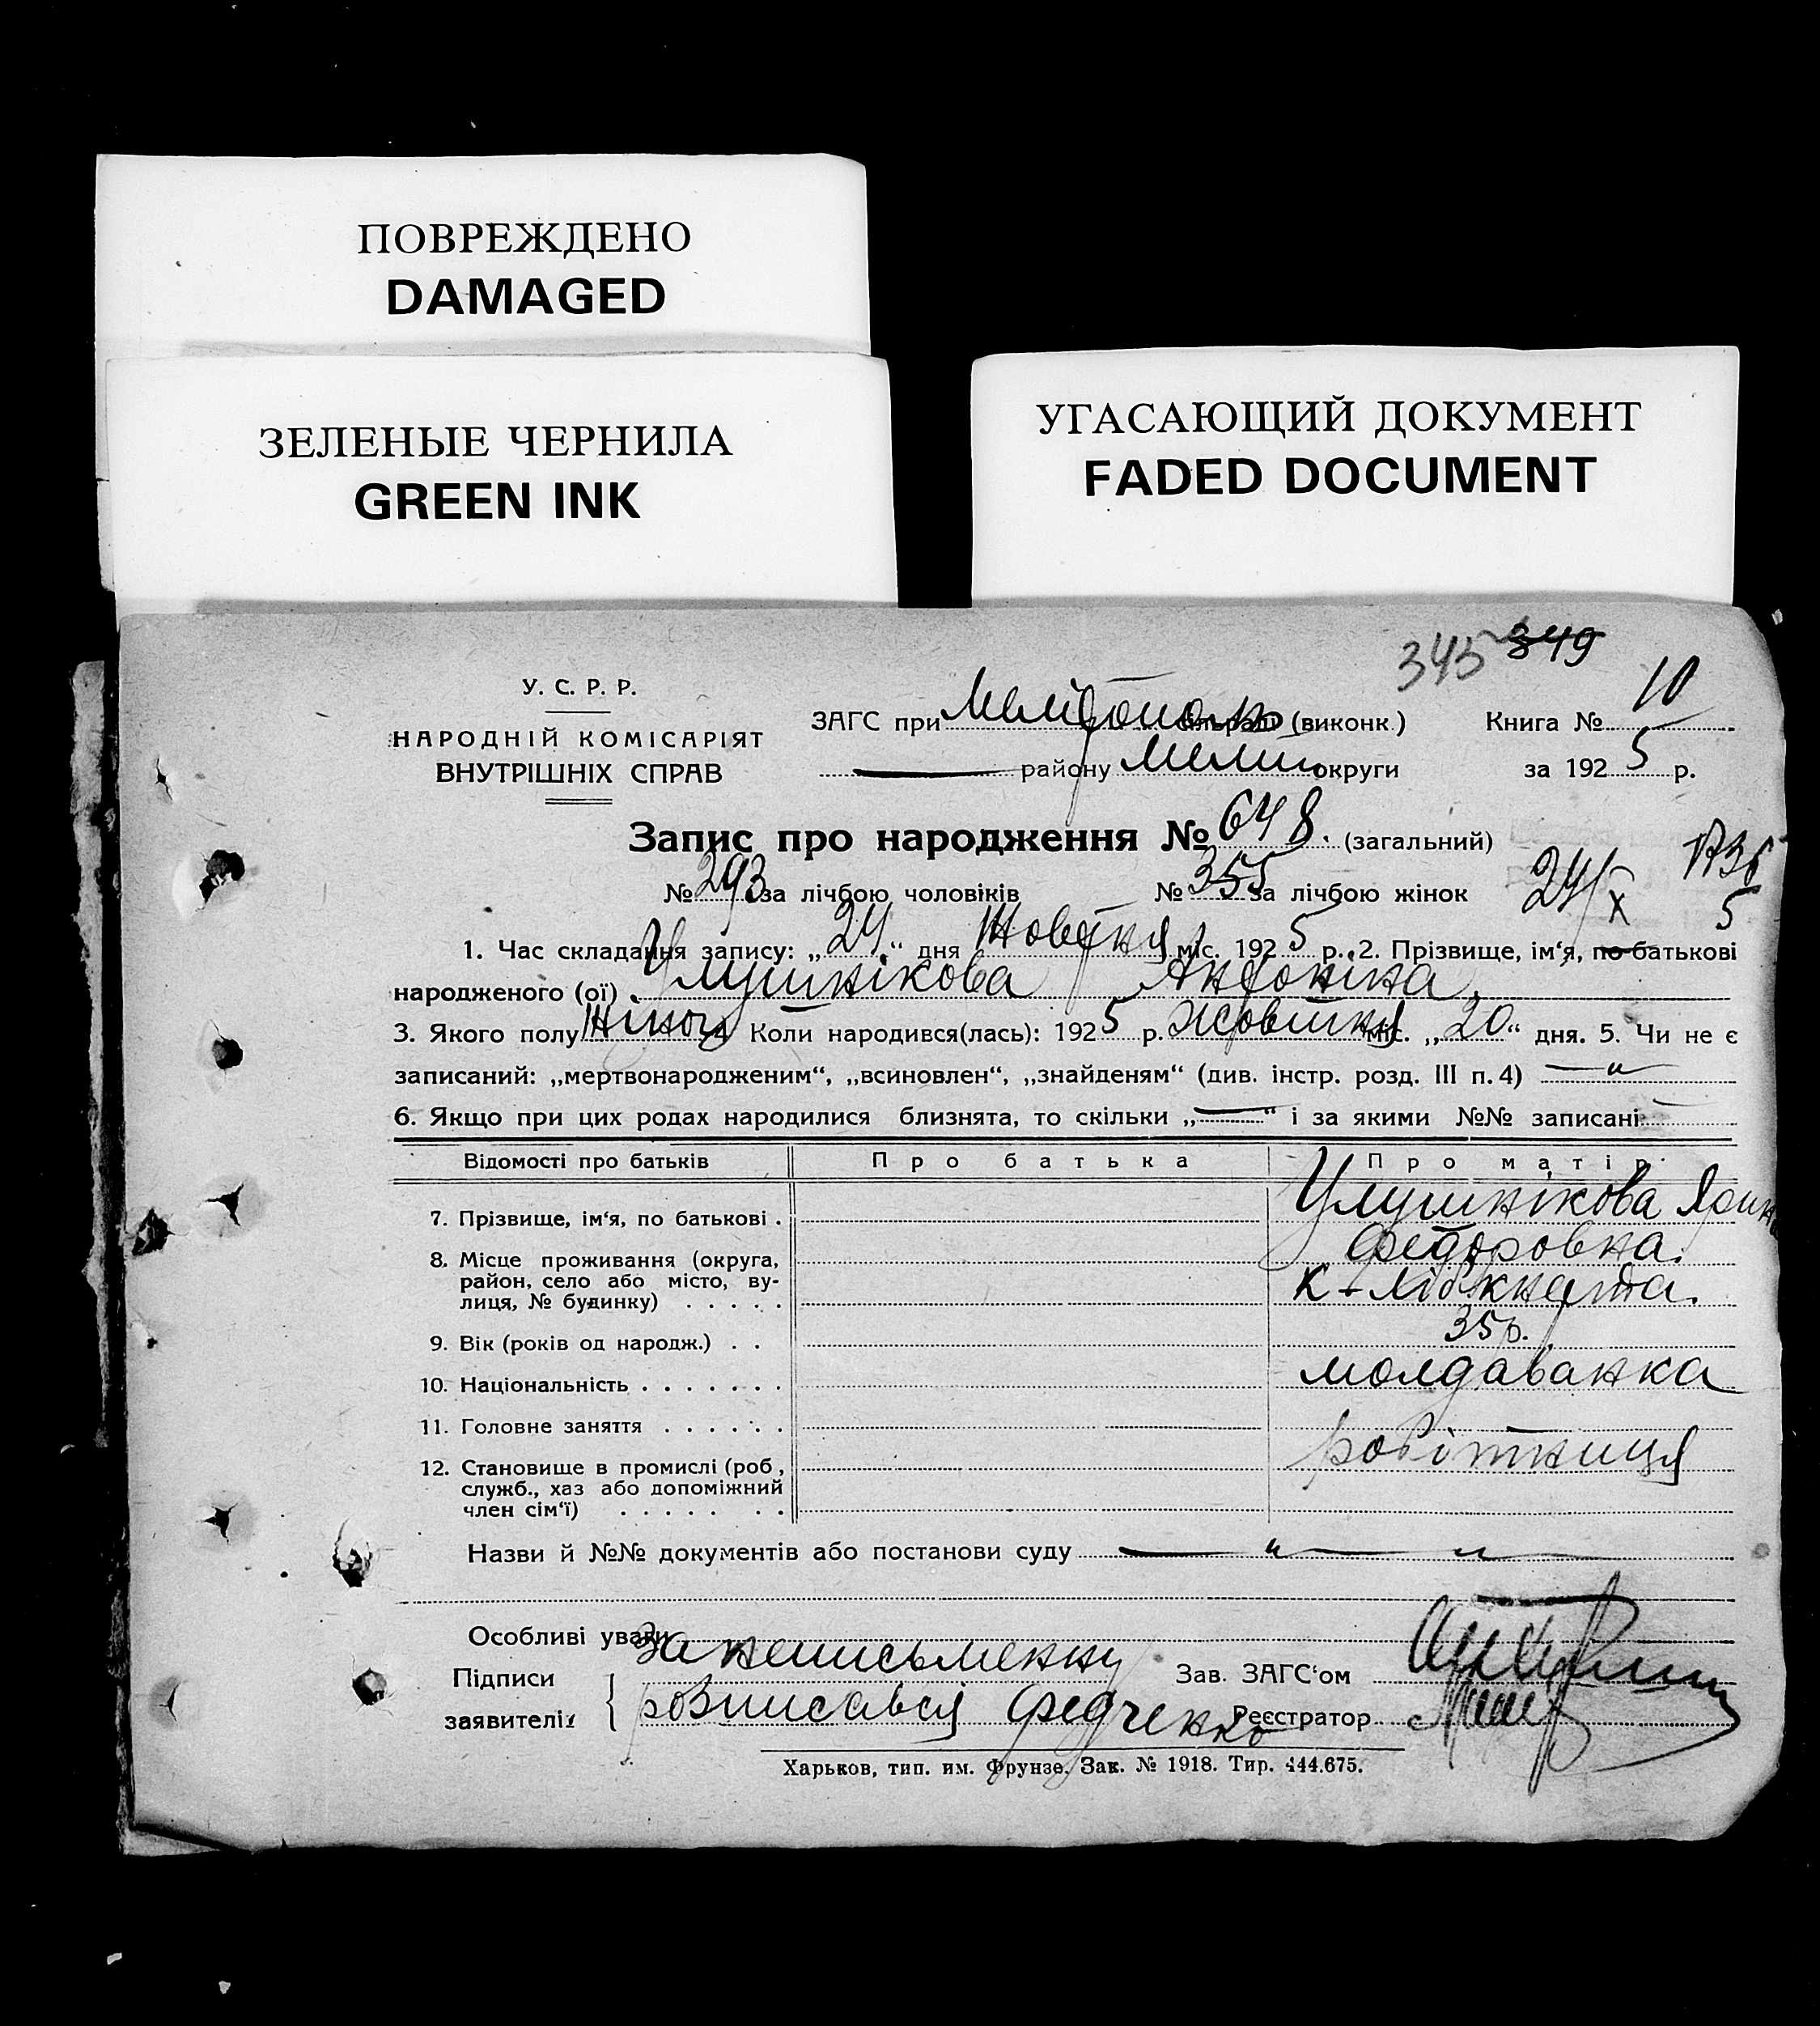 ПОВРЕЖДЕНО
DAMAGED
ЗЕЛЕНЫЕ ЧЕРНИЛА
GREEN INK
УГАСАЮЩИЙ ДОКУМЕНТ
FADED DOCUMENT
345 349
У. С. Р. Р.
НАРОДНІЙ КОМІСАРІЯТ
ВНУТРІШНІХ СПРАВ
ЗАГС при (виконк.) Книга № 10
району округи за 1925 р.
Запис про народження № 648. (загальний)
№ 293 за лічбою чоловіків № 355 за лічбою жінок 24/X 5
1. Час складання запису: „24“ дня Жовтня міс. 1925 р. 2. Прізвище, ім‘я, по батькові
народженого (ої) Улушнікова Антоніна.
3. Якого полу Жіноч 4. Коли народився(лась): 1925 р. Жовтня міс. „20“ дня. 5. Чи не є
записаний: „мертвонародженим“, „всиновлен“, „знайденям“ (див. інстр. розд. III п. 4) — „ —
6. Якщо при цих родах народилися близнята, то скільки „—“ і за якими №№ записані
Відомості про батьків Про батька Про матір
7. Прізвище, ім‘я, по батькові . Улушнікова Ярина
Федоровна.
8. Місце проживання (округа,
район, село або місто, ву-
лиця, № будинку) . . . . .
9. Вік (років од народж.) . . 35 р.
10. Національність . . . . . . . молдаванка
11. Головне заняття . . . . . .
12. Становище в промислі (роб., робітниця
служб., хаз або допоміжний
член сім‘ї) . . . . . . .
Назви й №№ документів або постанови суду — „ — „ —
Особливі уваги
Підписи За неписьменну Зав. ЗАГС‘ом
заявителів розписався Федченко Реєстратор
Харьков, тип. им. Фрунзе. Зак. № 1918. Тир. 444.675.